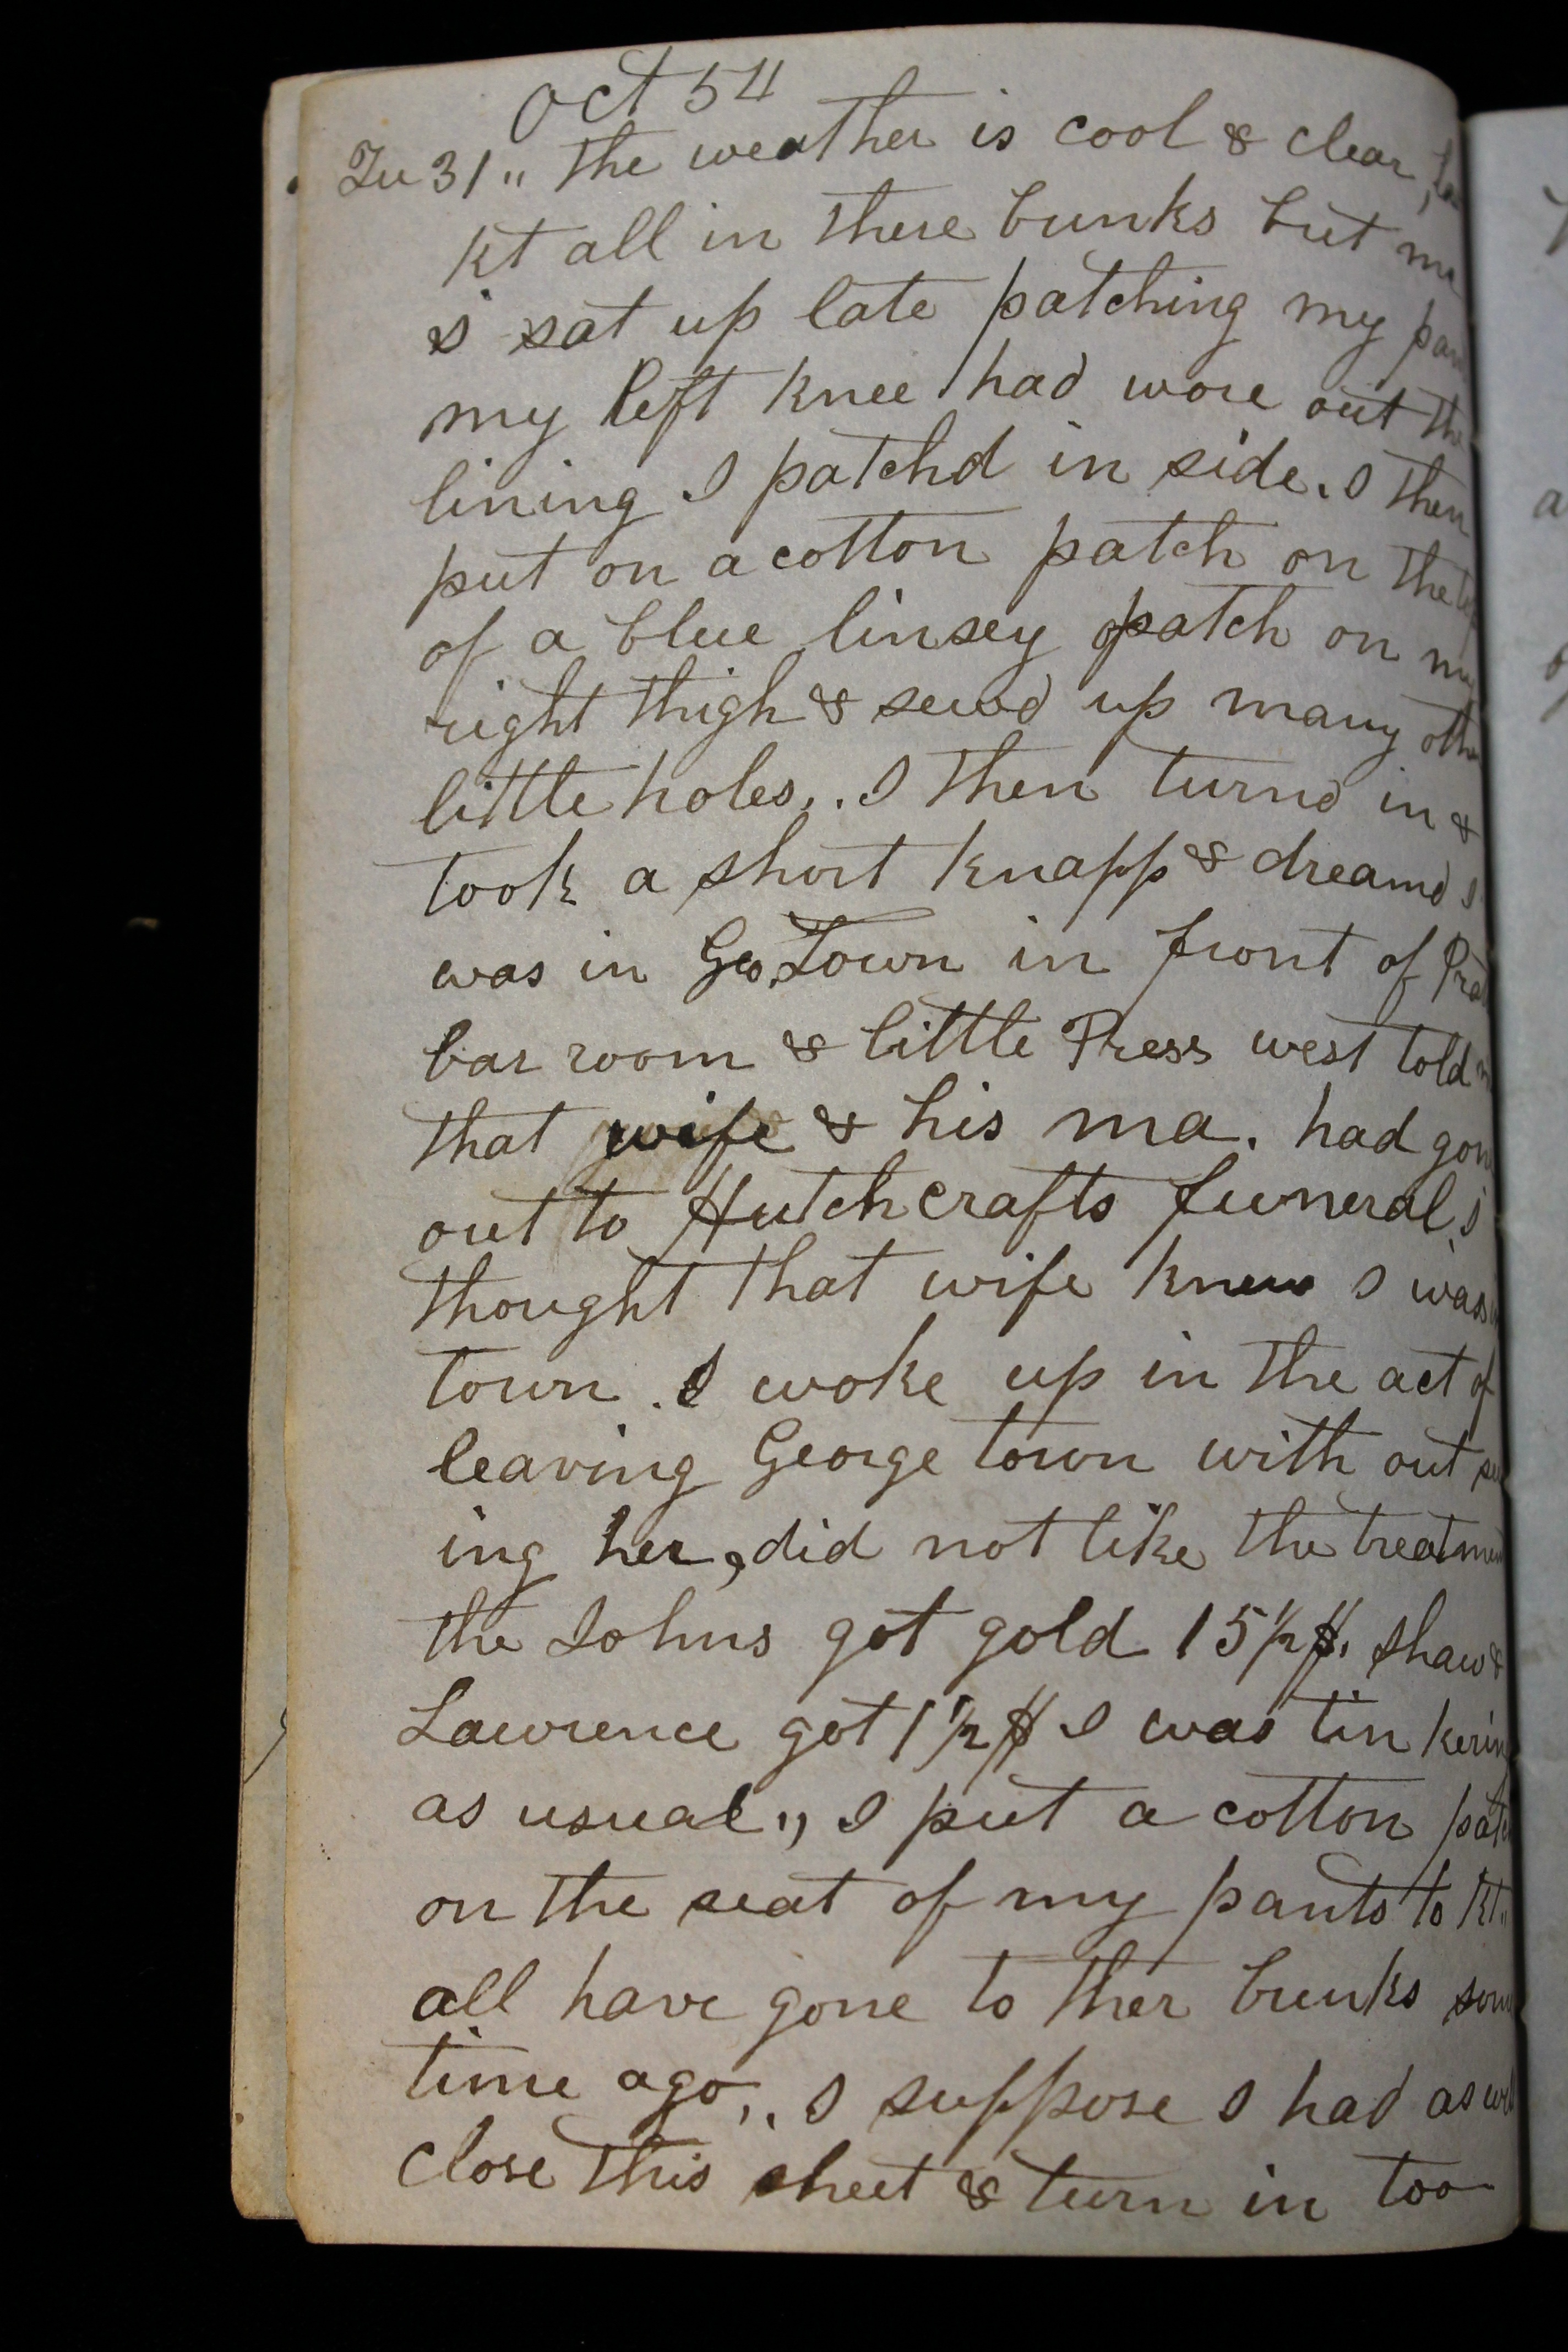 Oct 54
Tu 31 " the weather is cool & clear, las
kt all in there bunks but me
I sat up late patching my pan
my left knee had wore out the
lining I patchd in side. I then
put on a cotton patch on the top
of a blue linsey patch on my
right thigh & sewd up many othe
little holes,.. I then turnd in &
took a short knapp & dreamd I
was in Geo.Town in front of Prat
bar room & little Press west told m
that wife & his ma. had gon
out to Hutchcrafts funeral, I
thought that wife knew I was in
town. I woke up in the act of
leaving George town with out se
ing her, did not like the treatment
the Johns got gold 15 1/2 $. Shaw &
Lawrence got 1 1/2 $ I was tin kering
as usual ,, I put a cotton patch
on the seat of my pants to Kt..
all have gone to ther bunks some
time ago,.. I suppose I had as well
close this sheet & turn in too